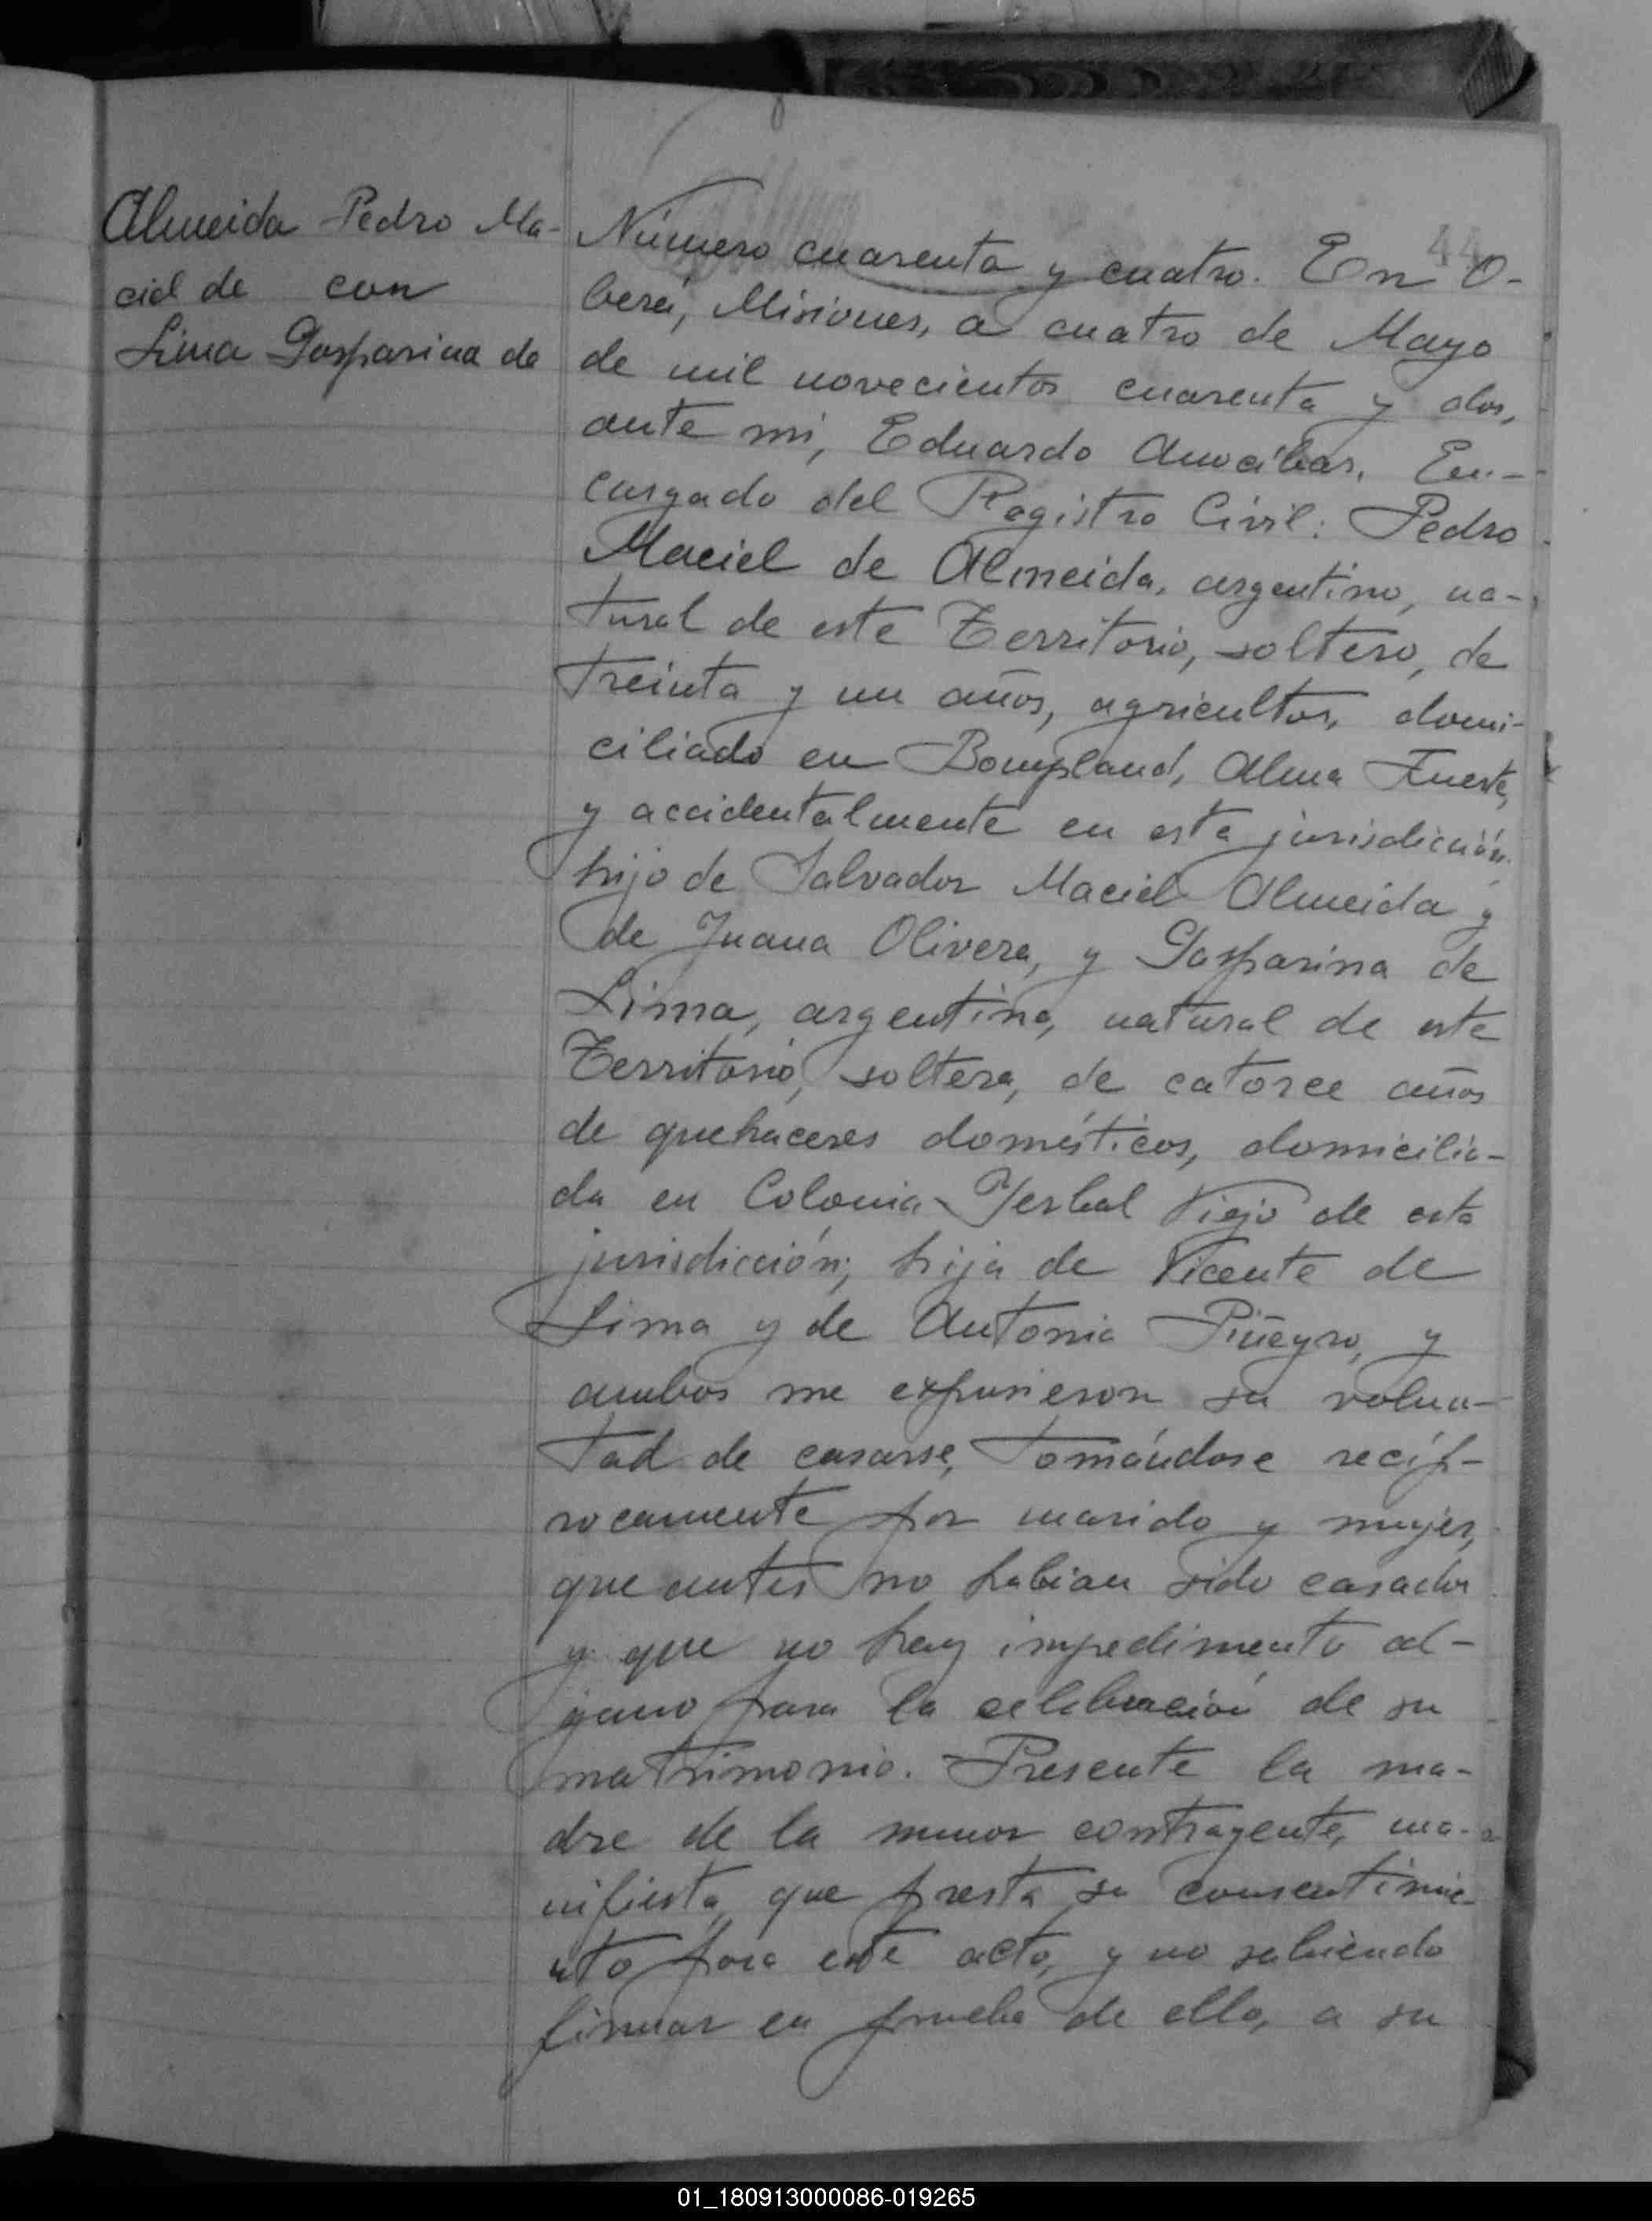 Almeida Pedro Ma-
ciel de con
Lima Gasparina de
44
Número cuarenta y cuatro. En O-
berá, Misiones, a cuatro de Mayo
de mil novecientos cuarenta y dos,
ante mi, Eduardo Amocibar, En-
cargado del Registro Civil: Pedro
Maciel de Almeida, argentino, na-
tural de este Territorio, soltero, de
treinta y un años, agricultor, domi-
ciliado en Bompland, Alma Fuerte,
y accidentalmente en esta jurisdicción,
hijo de Salvador Maciel Almeida y
de Juana Olivera, y Gasparina de
Lima, argentina, natural de este
Territorio, soltera, de catorce años
de quehaceres domésticos, domicilia-
da en Colonia Yerbal Viejo de esta
jurisdicción; hija de Vicente de
Lima y de Antonia Piñeyro, y
ambos me expusieron su volun-
tad de casarse, tomándose recíp-
rocamente por marido y mujer,
que antes no habian sido casados
y que no hay impedimento al-
guno para la celebración de su
matrimonio. Presente la ma-
dre de la menor contrayente, ma-
nifiesta que presta su consentimie-
nto para este acto, y no sabiendo
firmar en prueba de ello, a su
01_180913000086-019265